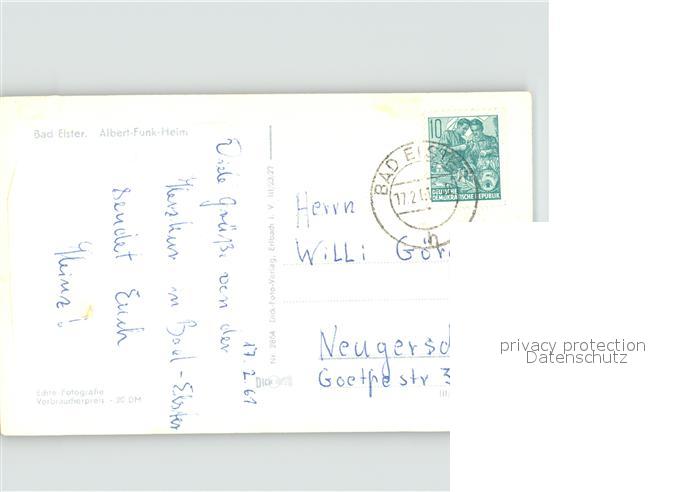 Bad Elster. Albert-Funk-Heim
Viele Grüße von der
Herzkur in Bad-Elster
sendet Euch
Heinz!
17.2.61
Echte Fotografie
Verbraucherpreis -.20 DM
Nr. 2864 Dick-Foto-Verlag, Erlbach i. V. III/23/27
Dick
10
DEUTSCHE
DEMOKRATISCHE REPUBLIK
BAD ELSTER
17.2.61
h
Herrn
Willi Gör
Neugersd
Goethestr 3
privacy protection
Datenschutz